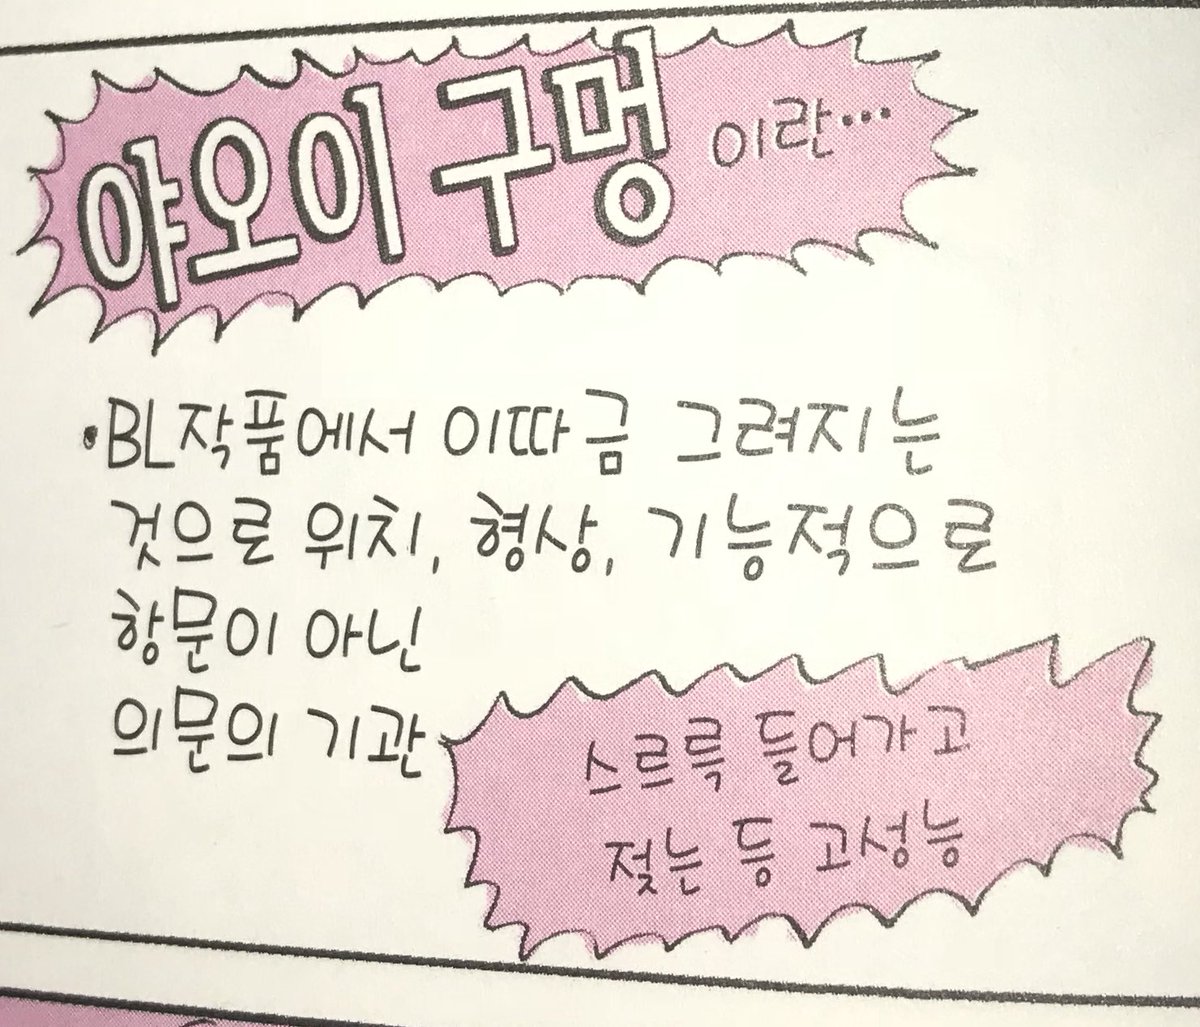 야오이 구멍 이란...
• BL작품에서 이따금 그려지는
것으로 위치, 형상, 기능적으로
항문이 아닌
의문의 기관
스르륵 들어가고
젖는 등 고성능